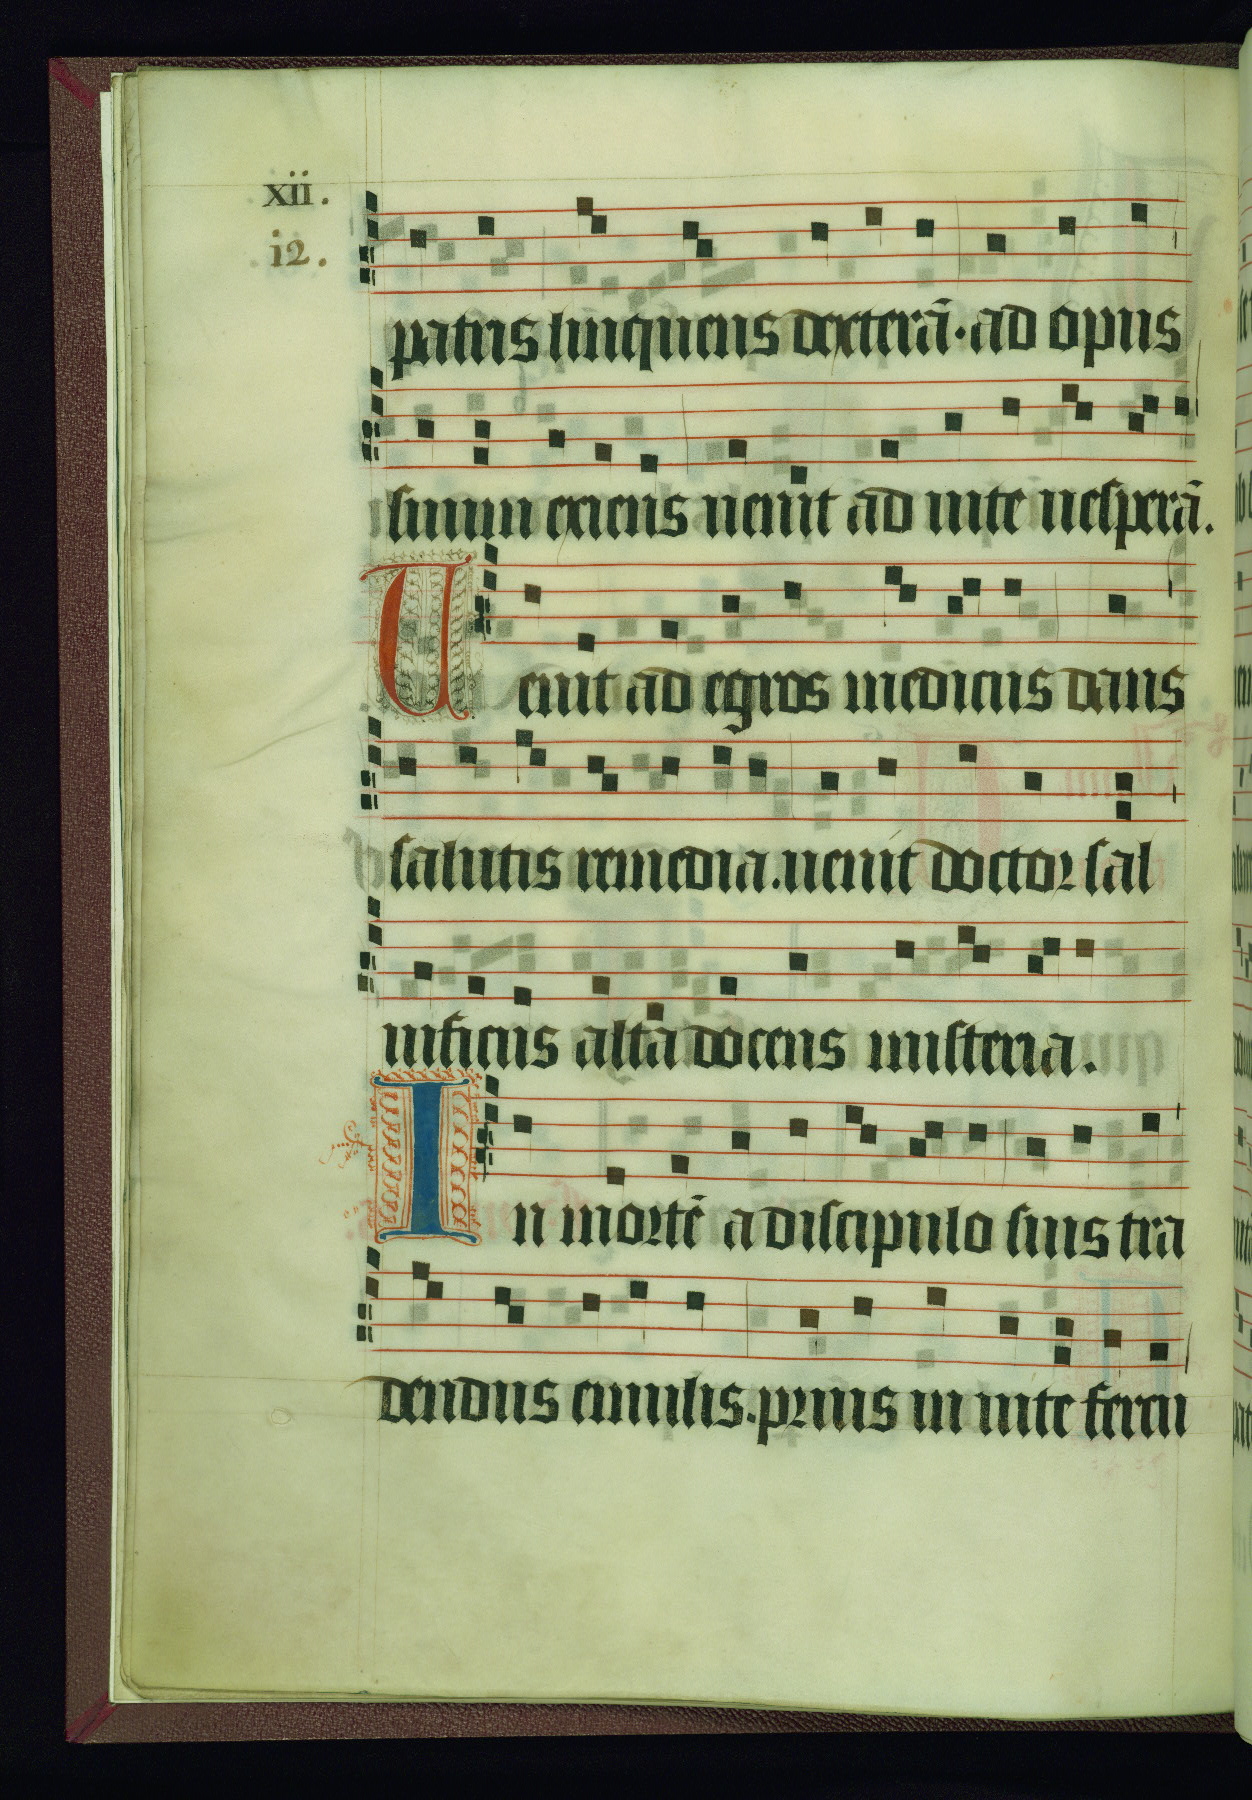 xii.
.i2.
patris linquens dexterā·ad opus
suum exiens uenit ad uite uesperā.
Uenit ad egros medicus dans
salutis remedia.uenit doctor sal
uificus alta docens misteria.
In mortē a discipulo suis tra
dendus emulis.prius in uite fercu